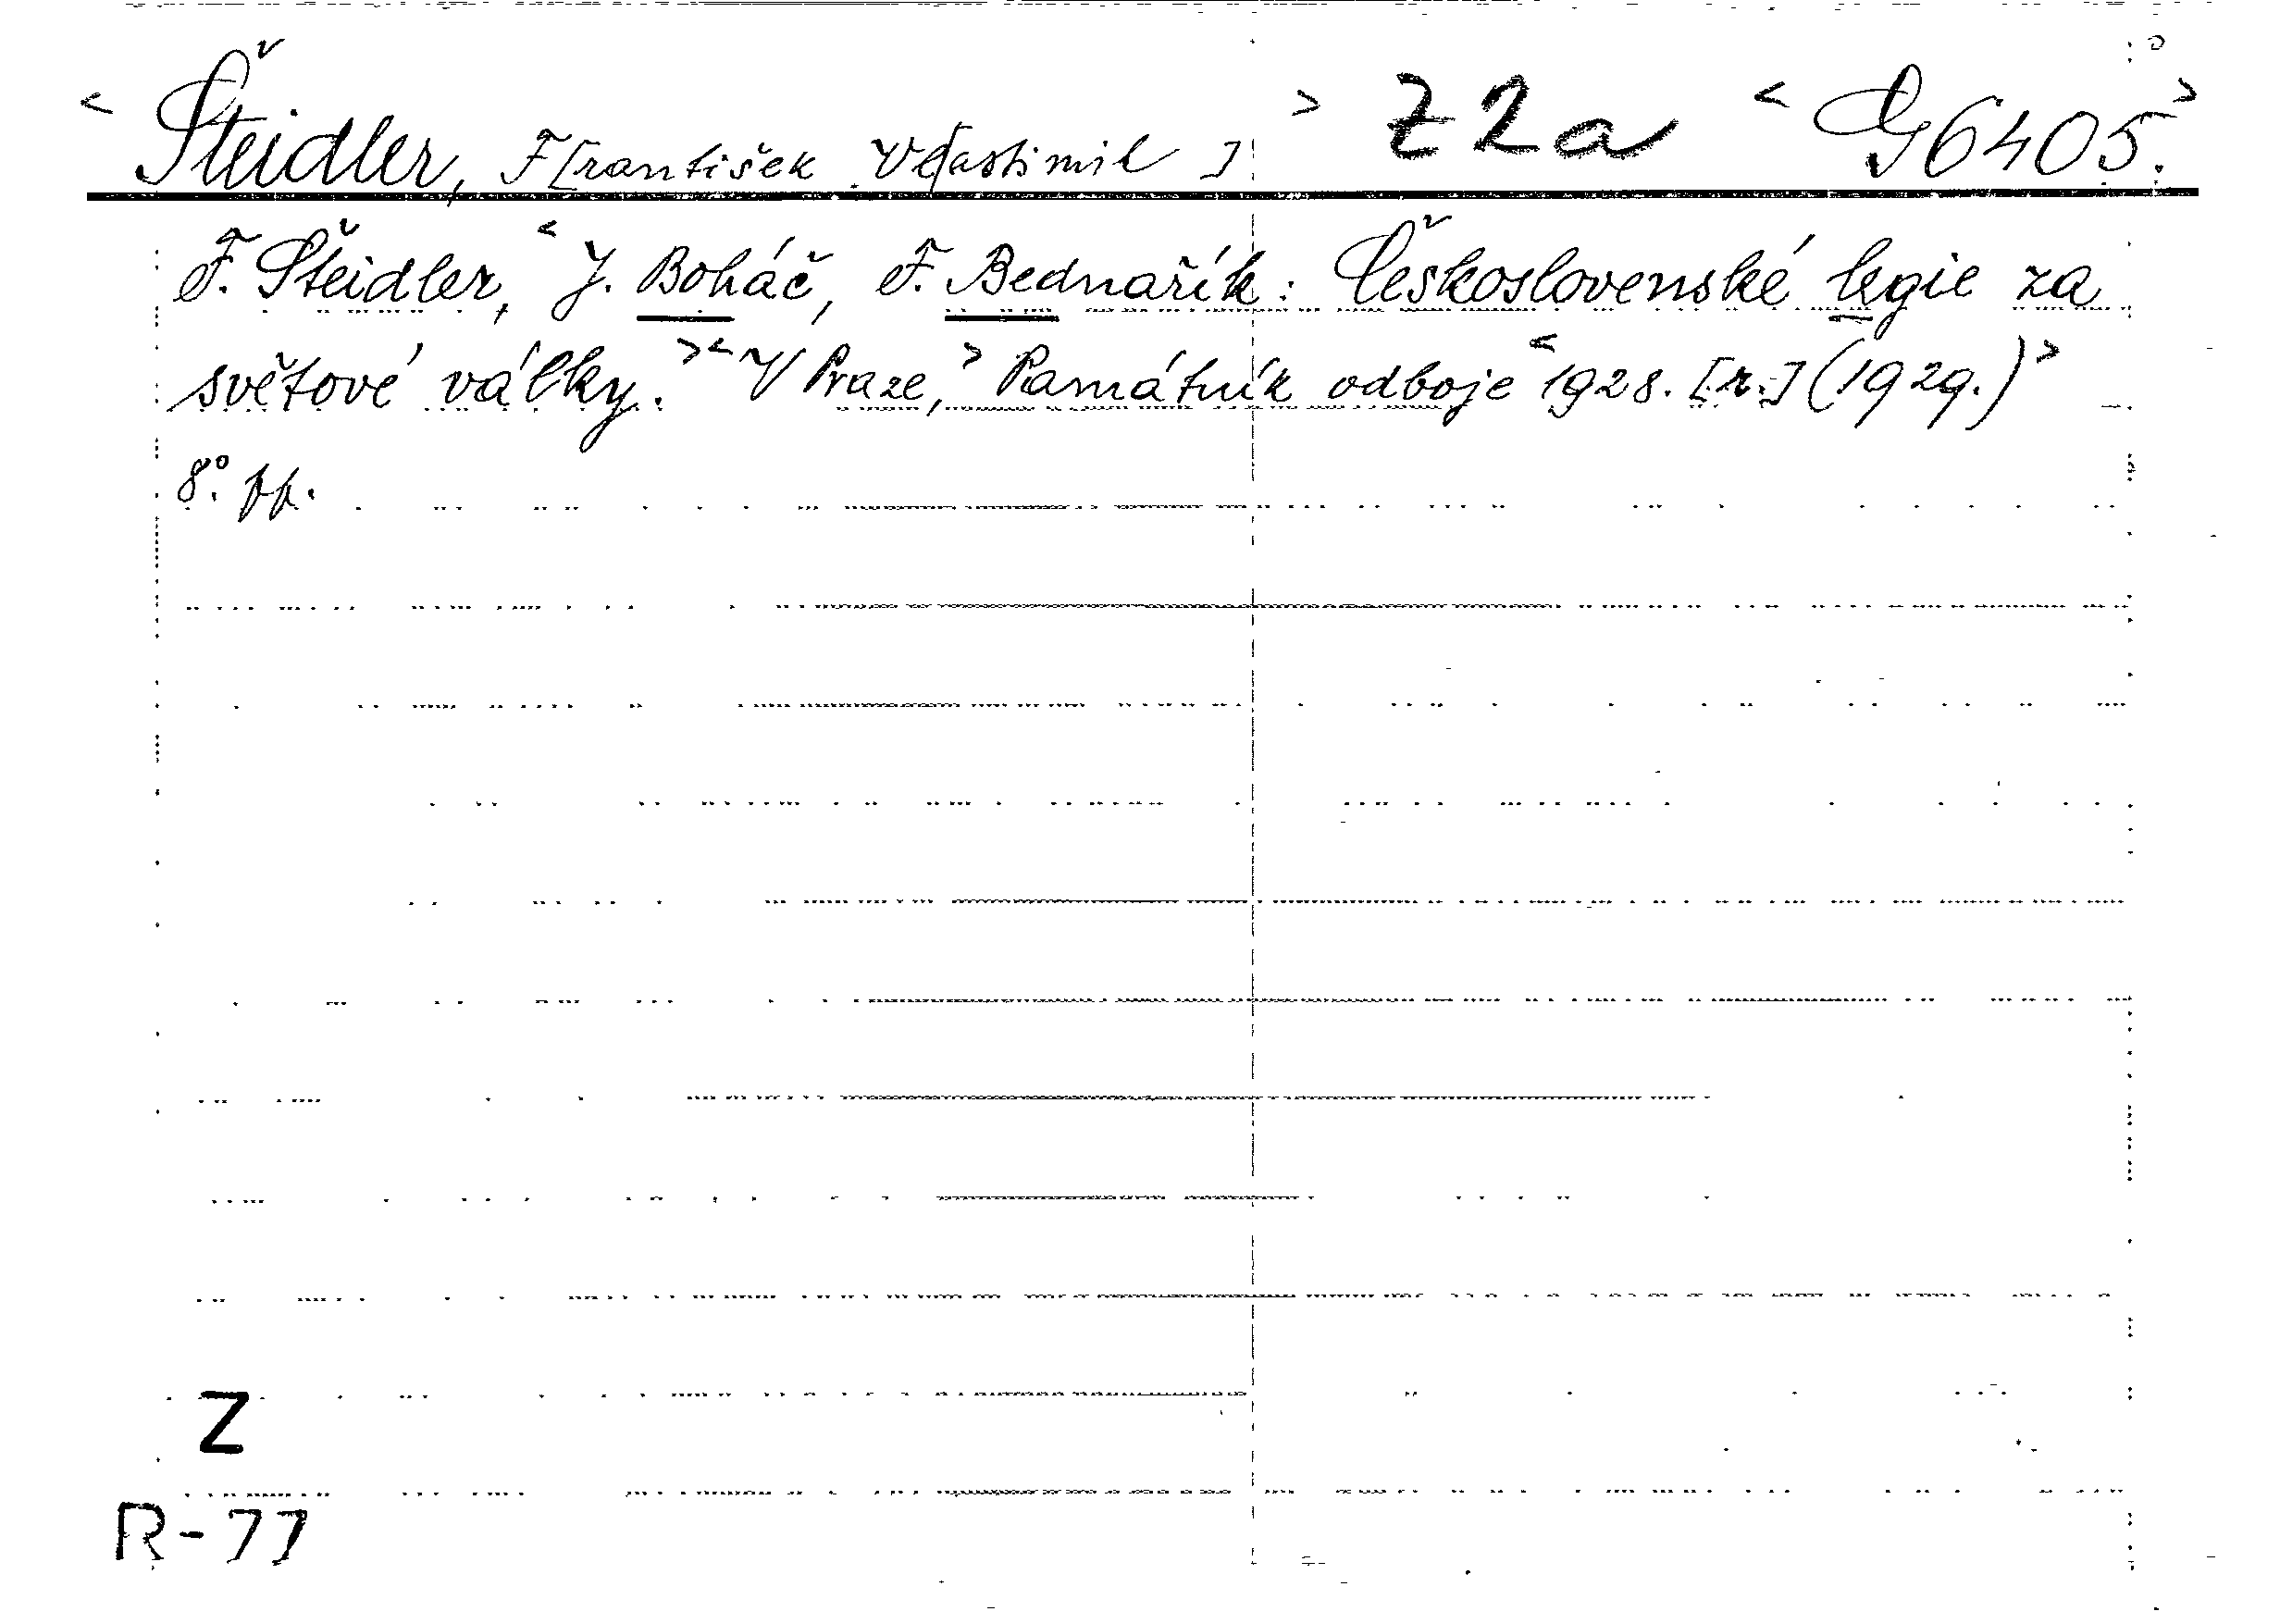 < Šteidler, F[rantišek Vlastimil] > Z 2 a < G 6405. >
F. Šteidler, < J. Boháč, F. Bednařík: Československé legie za
světové války. > < V Praze, > Památník odboje < 1928. [r.] (1929.) >
8°. pp.
Z
R-77